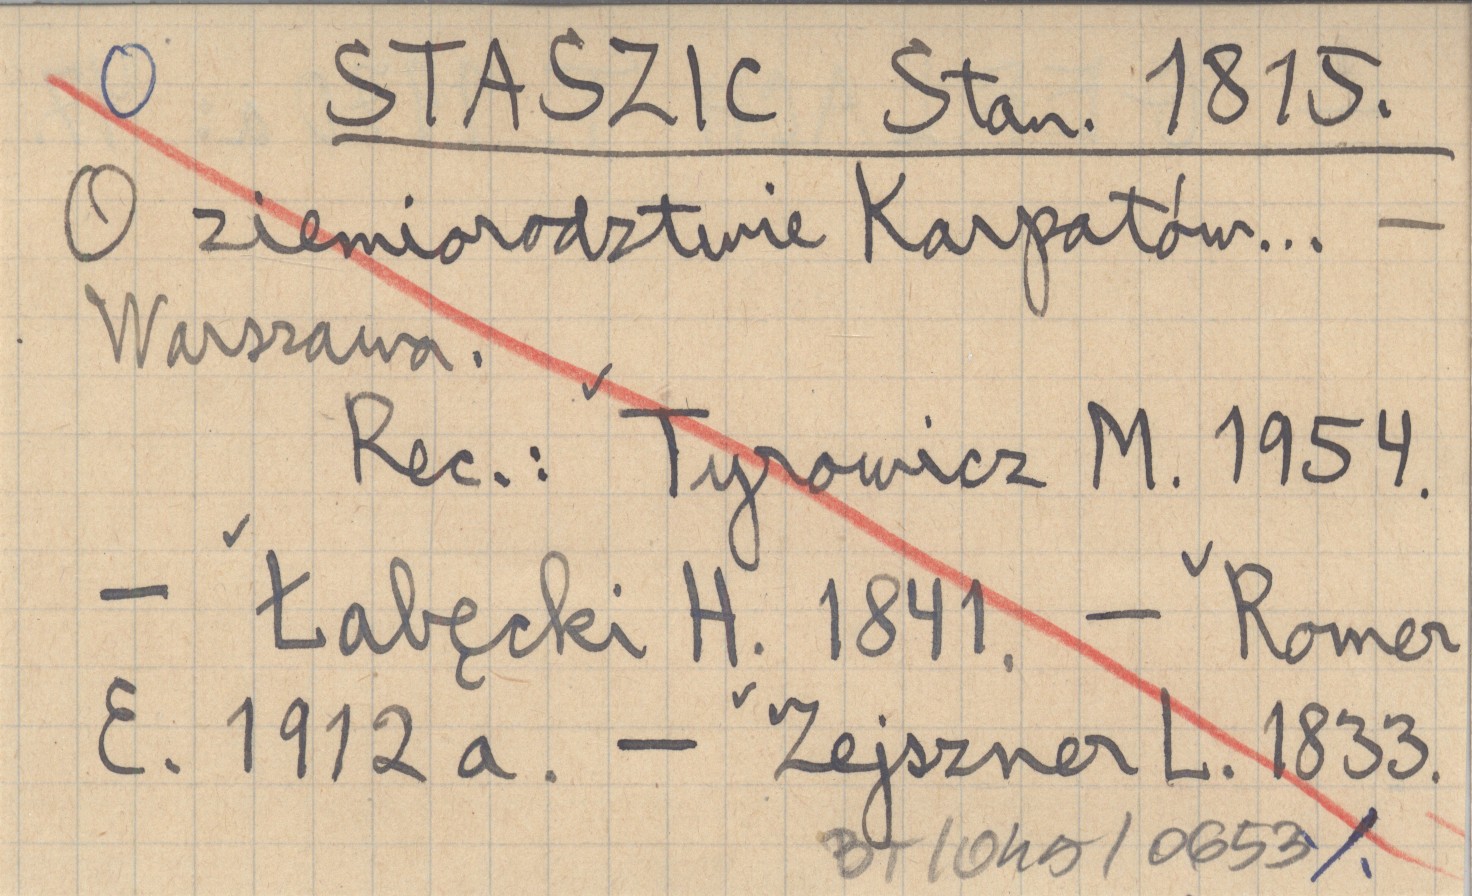 O STASZIC Stan. 1815.
O ziemiorodztwie Karpatów... —
Warszawa.
Rec.: Tyrowicz M. 1954.
— Łabęcki H. 1841. — Romer
E. 1912 a. — Zejszner L. 1833.
0653/.